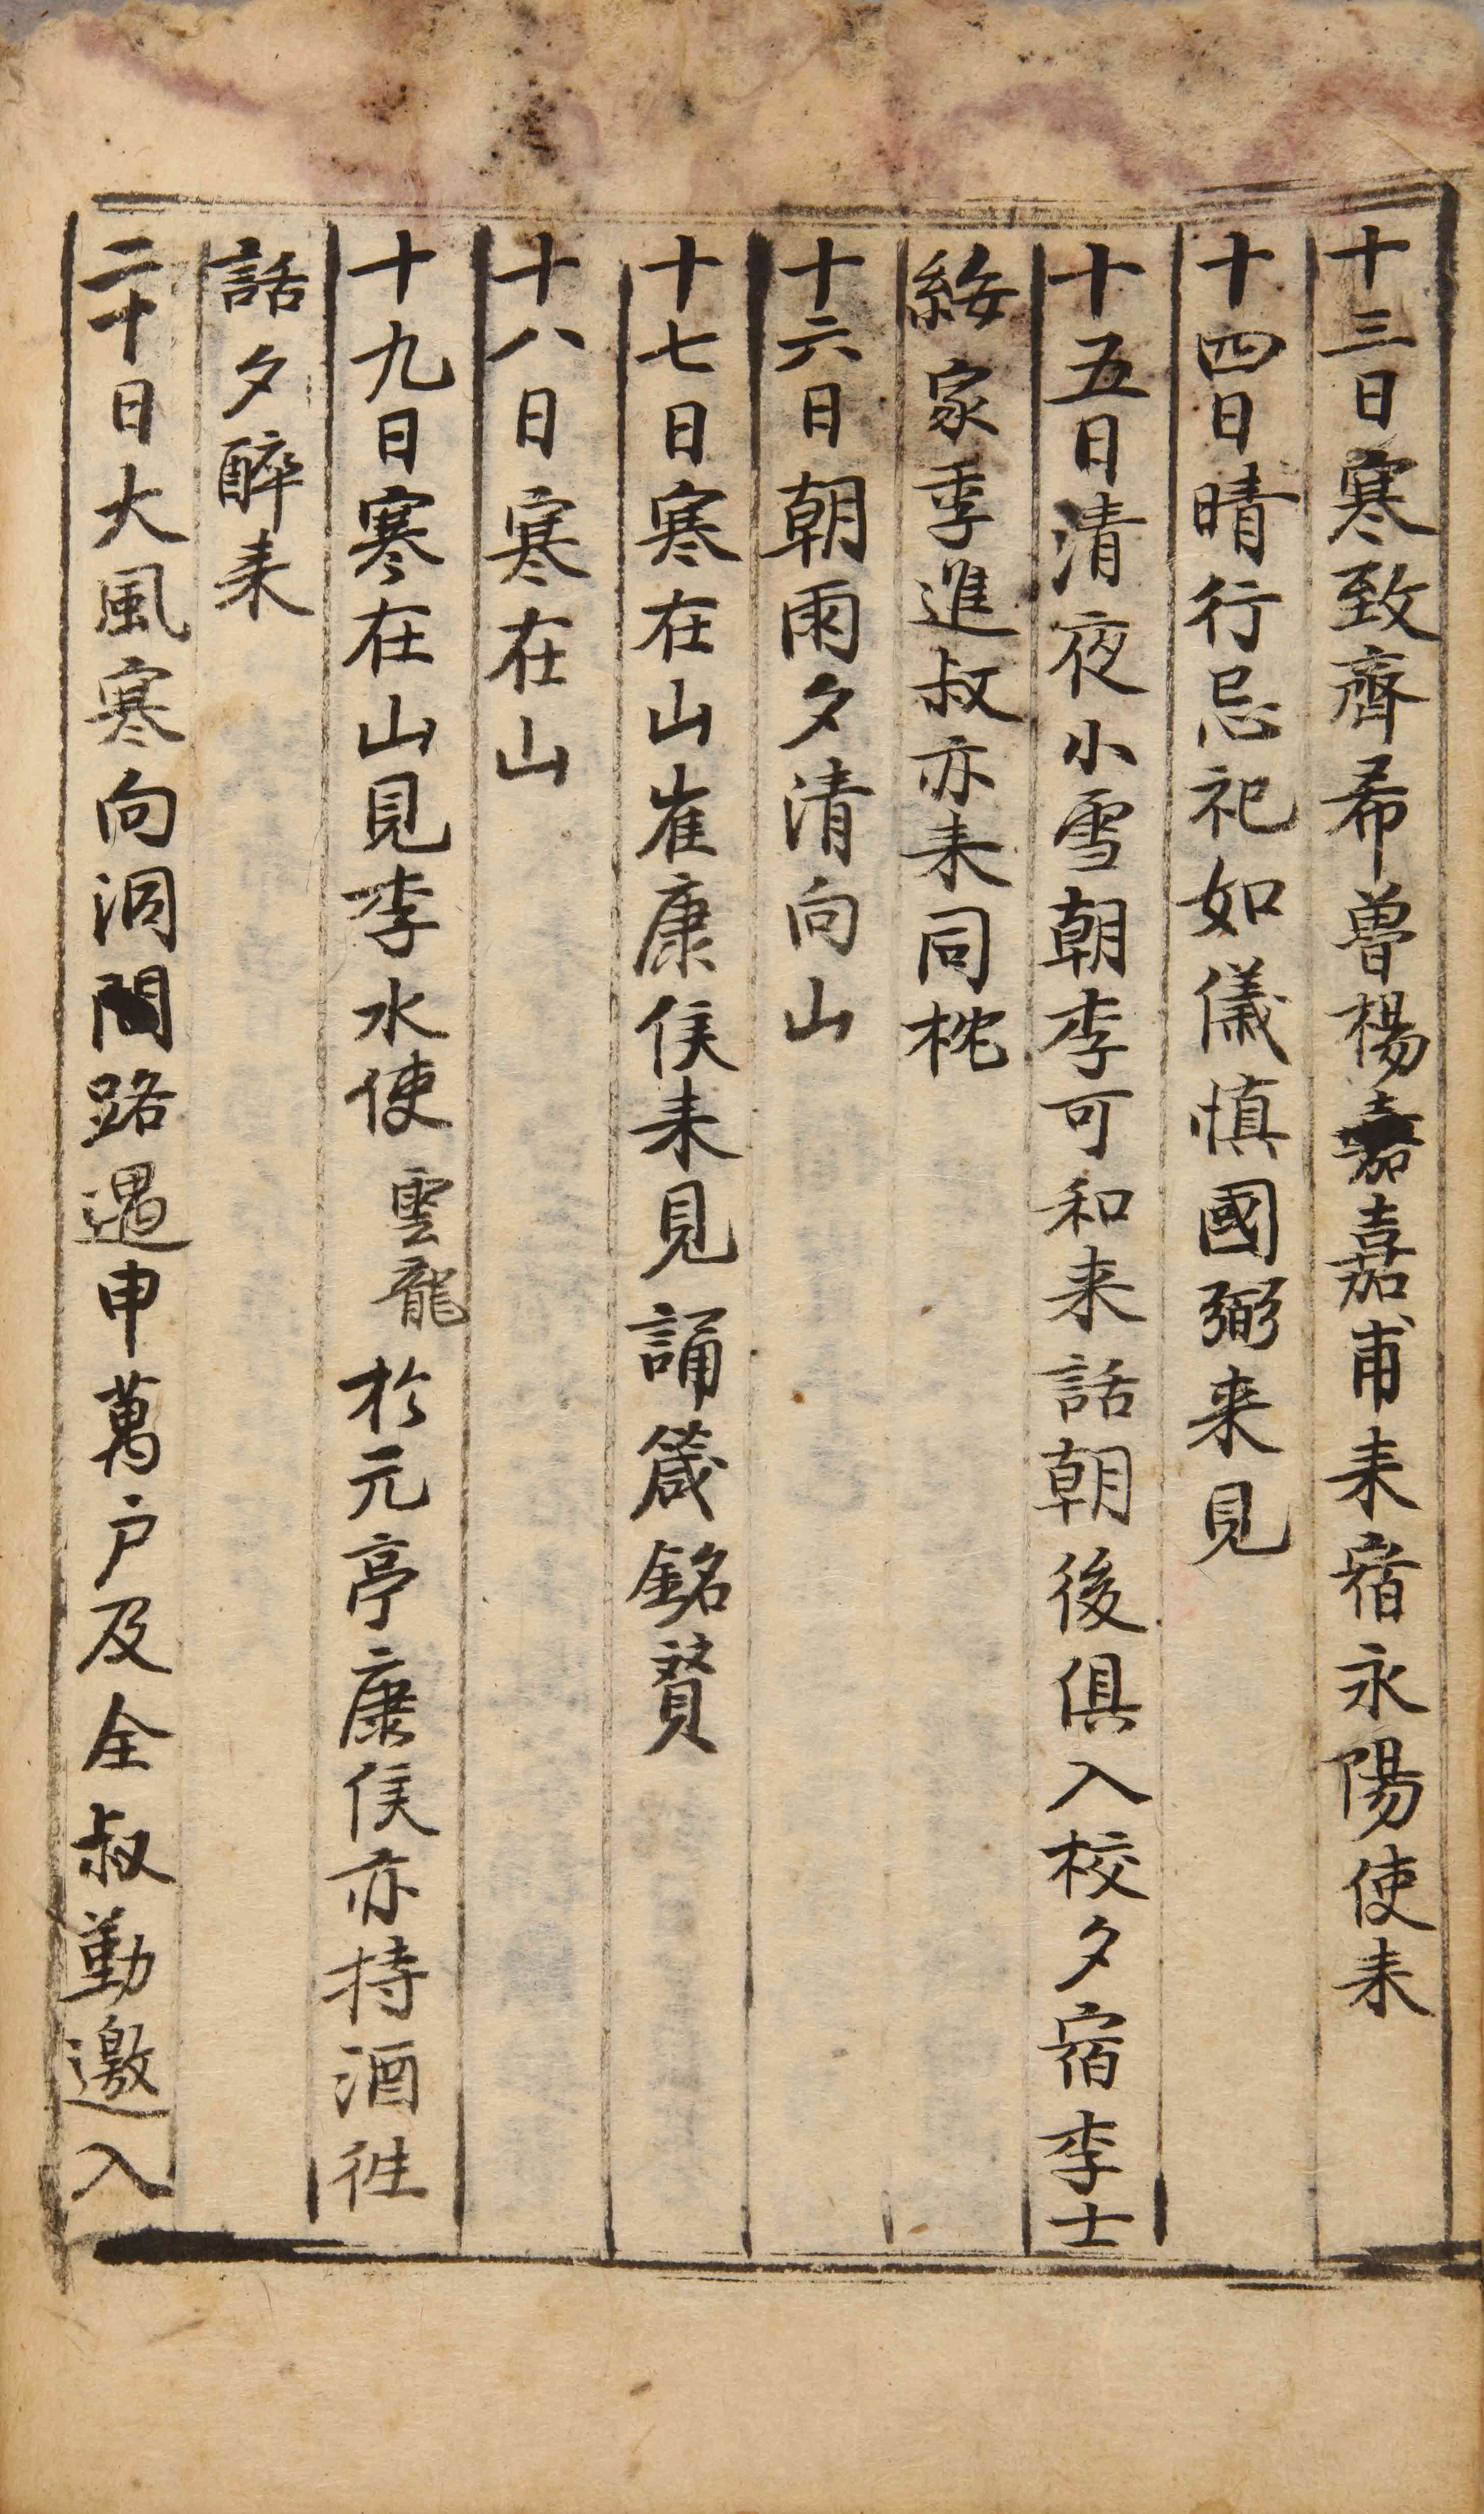 十三日寒致齊希曾楊嘉甫来宿永陽使来
十四日晴行忌祀如儀慎國弼来見
十五日清夜小雪朝李可和来話朝後俱入校夕宿李士
綏家季進叔亦来同枕
十六日朝雨夕清向山
十七日寒在山崔康侯来見誦箴銘賛
十八日寒在山
十九日寒在山見李水使雲龍於元亭康侯亦持酒徃
話夕醉来
二十日大風寒向洞間路遇申萬户及全叔勤邀入